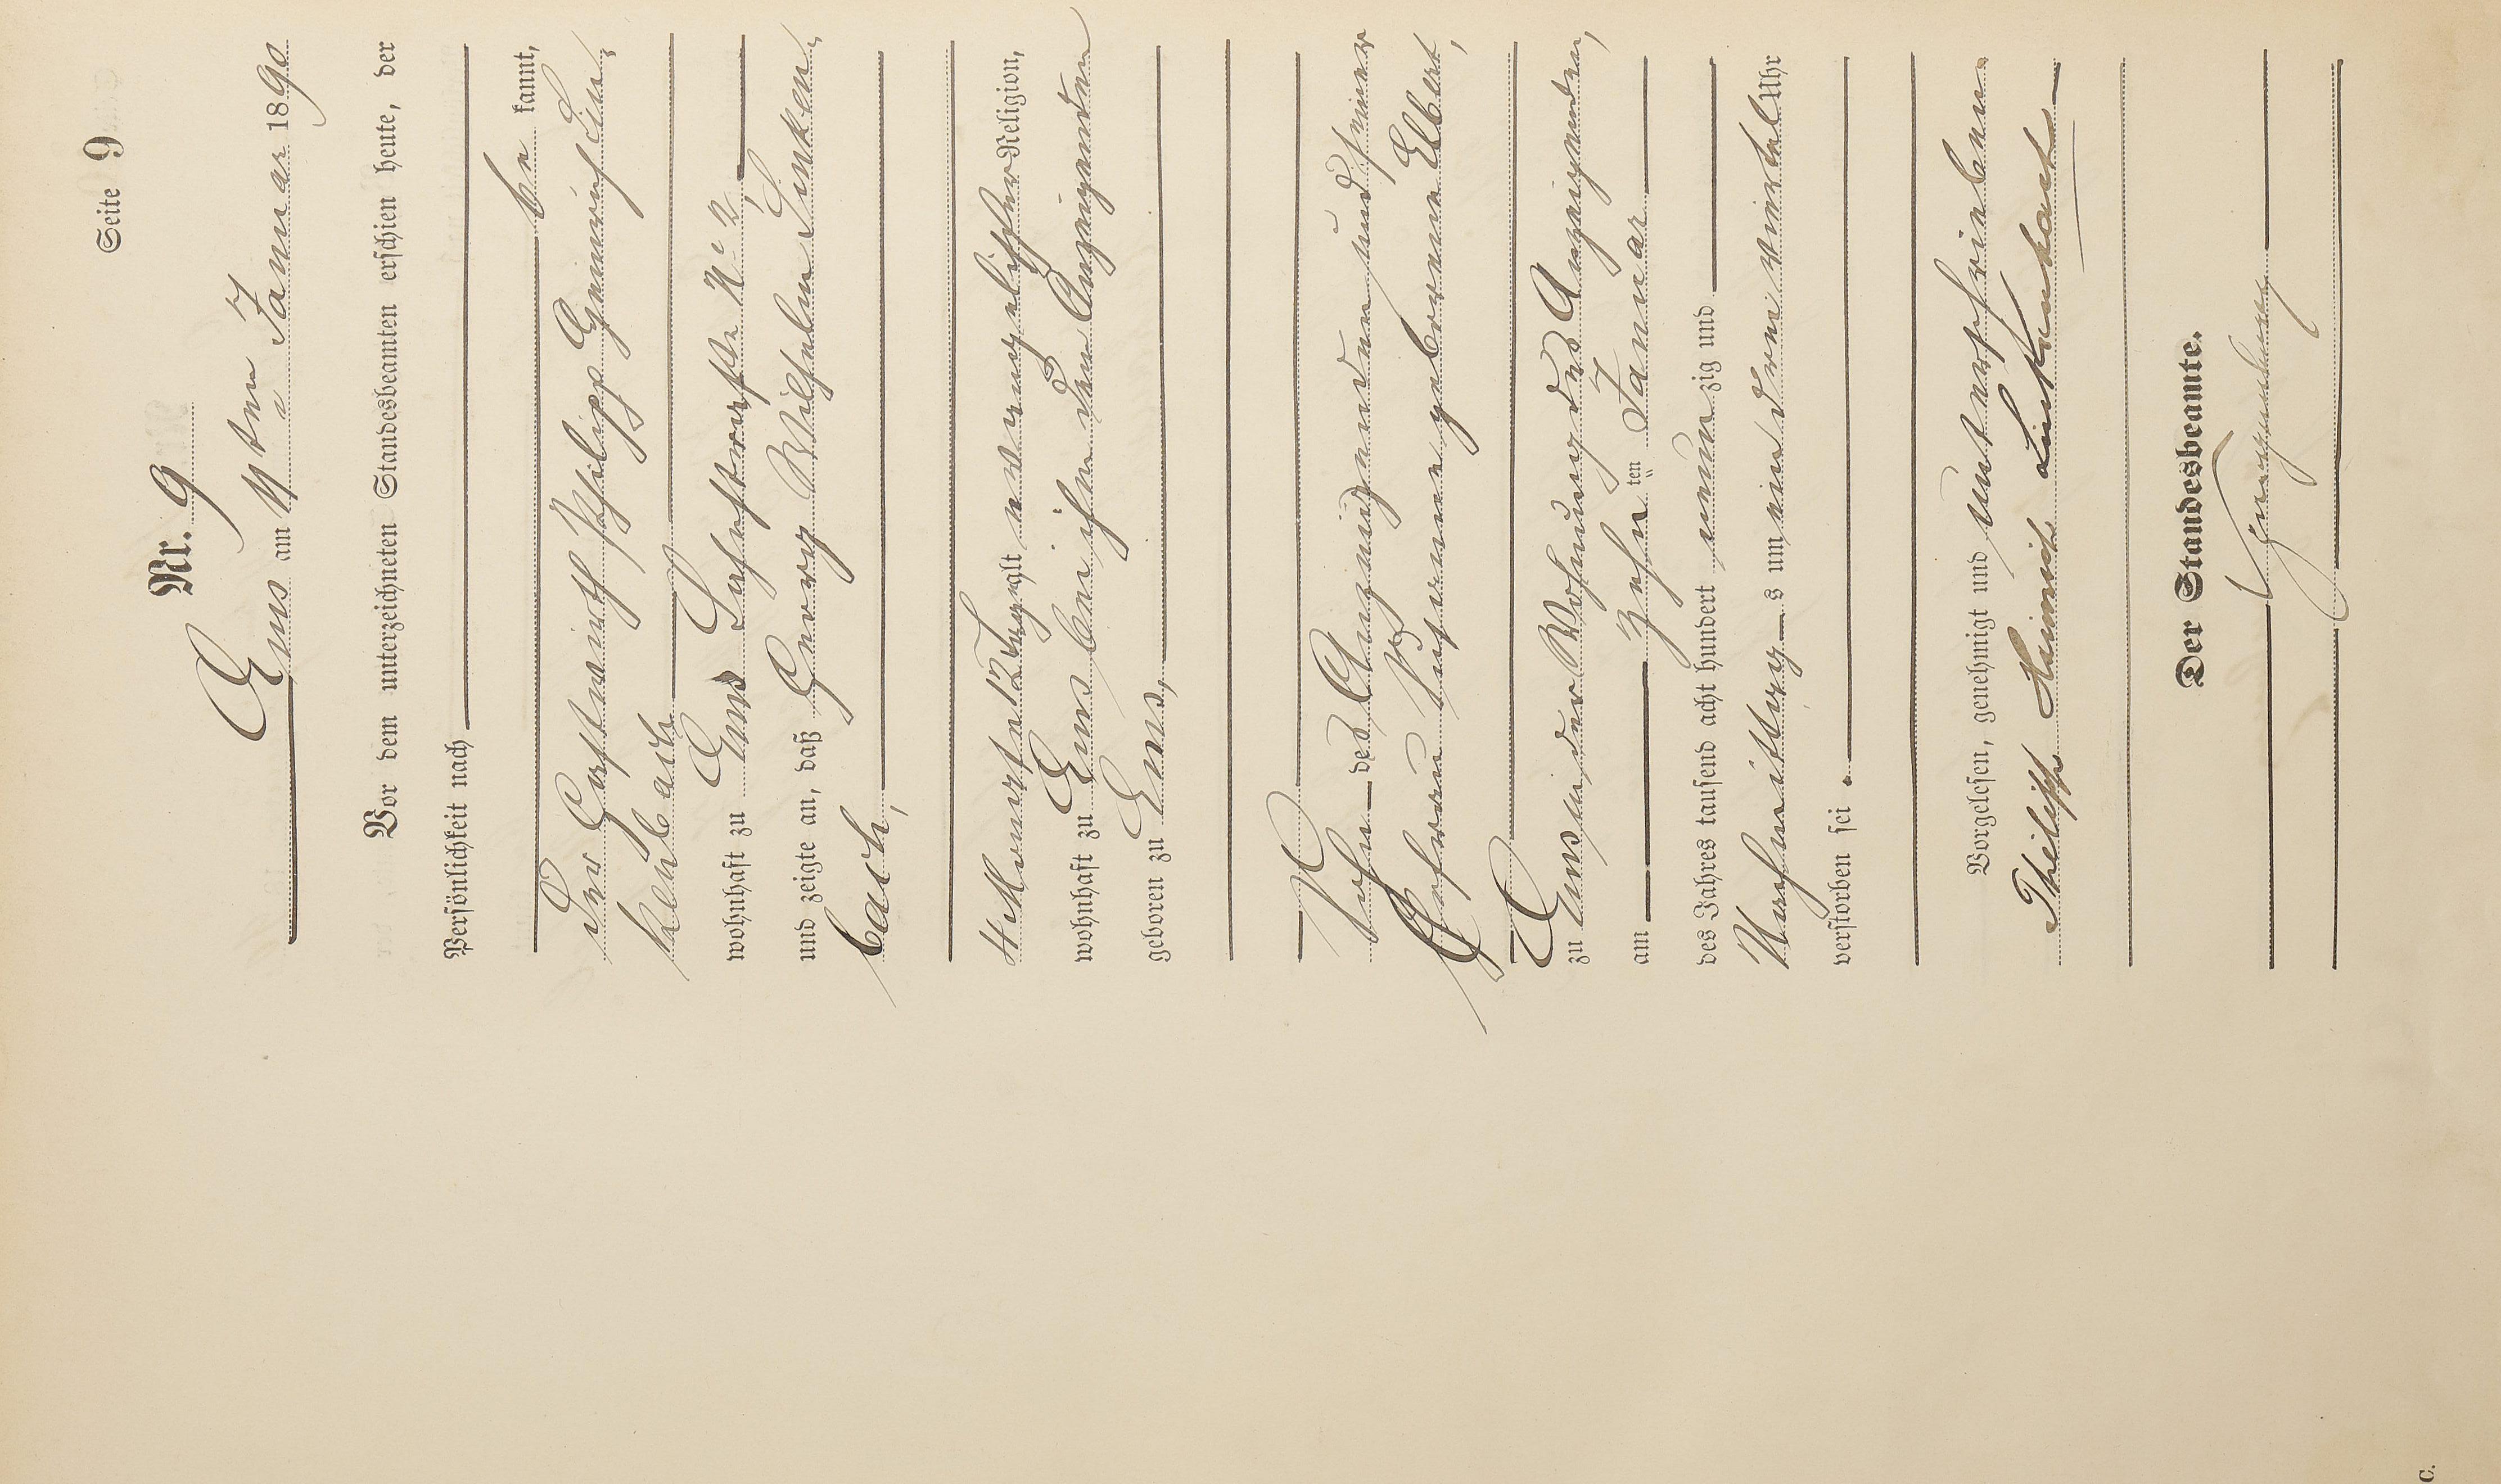 Seite 9
Nr. 9
Ems am 11ten Januar 1890
Vor dem unterzeichneten Standesbeamten erschien heute, der
Persönlichkeit nach
be kannt,
der Gastwirth Philipp Heinrich Lin-
kenbach
wohnhaft zu Ems No 2,
und zeigte an, daß Georg Wilhelm Linken-
bach,
4 Monate 12 Tage alt, evangelischer Religion,
wohnhaft zu Ems bei ihm dem Anzeigenden
geboren zu Ems,
Sohn des Anzeigenden und seiner
Ehefrau geborene Elbert,
zu Ems in der Wohnung des Anzeigenden,
am zehnten Januar
des Jahres tausend acht hundert neunzig und
Nachmittags um ein drei viertel Uhr
verstorben sei.
Vorgelesen, genehmigt und unterschrieben
Philipp Heinrich Linkenbach
Der Standesbeamte.
C.